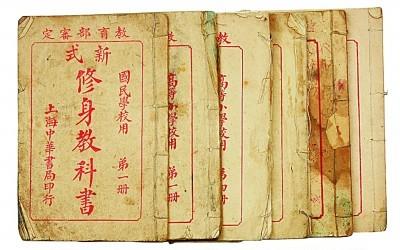 定審部育教
式新
國民學校用
第一册
修身教科書
上海中華書局印行
教
高等小學校用
第一册
教
高等小學校用
第四册